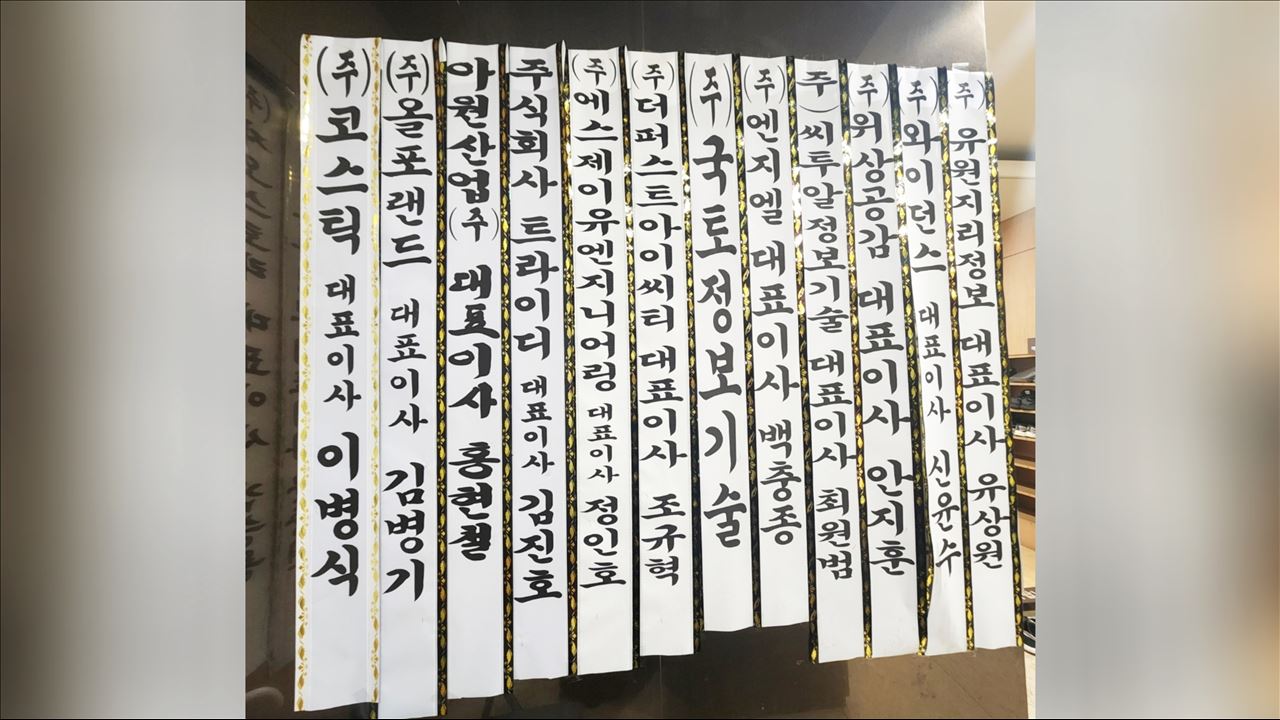 (주)코스틱 대표이사 이병식
(주)올포랜드 대표이사 김병기
아원산업(주) 대표이사 홍현철
주식회사 트라이디 대표이사 김진호
(주)에스제이유엔지니어링 대표이사 정인호
(주)더퍼스트아이씨티 대표이사 조규혁
(주)국토정보기술
(주)엔지엘 대표이사 백충종
주)씨투알정보기술 대표이사 최원범
(주)위상공감 대표이사 안지훈
(주)와이던스 대표이사 신윤수
(주)유원지리정보 대표이사 유상원